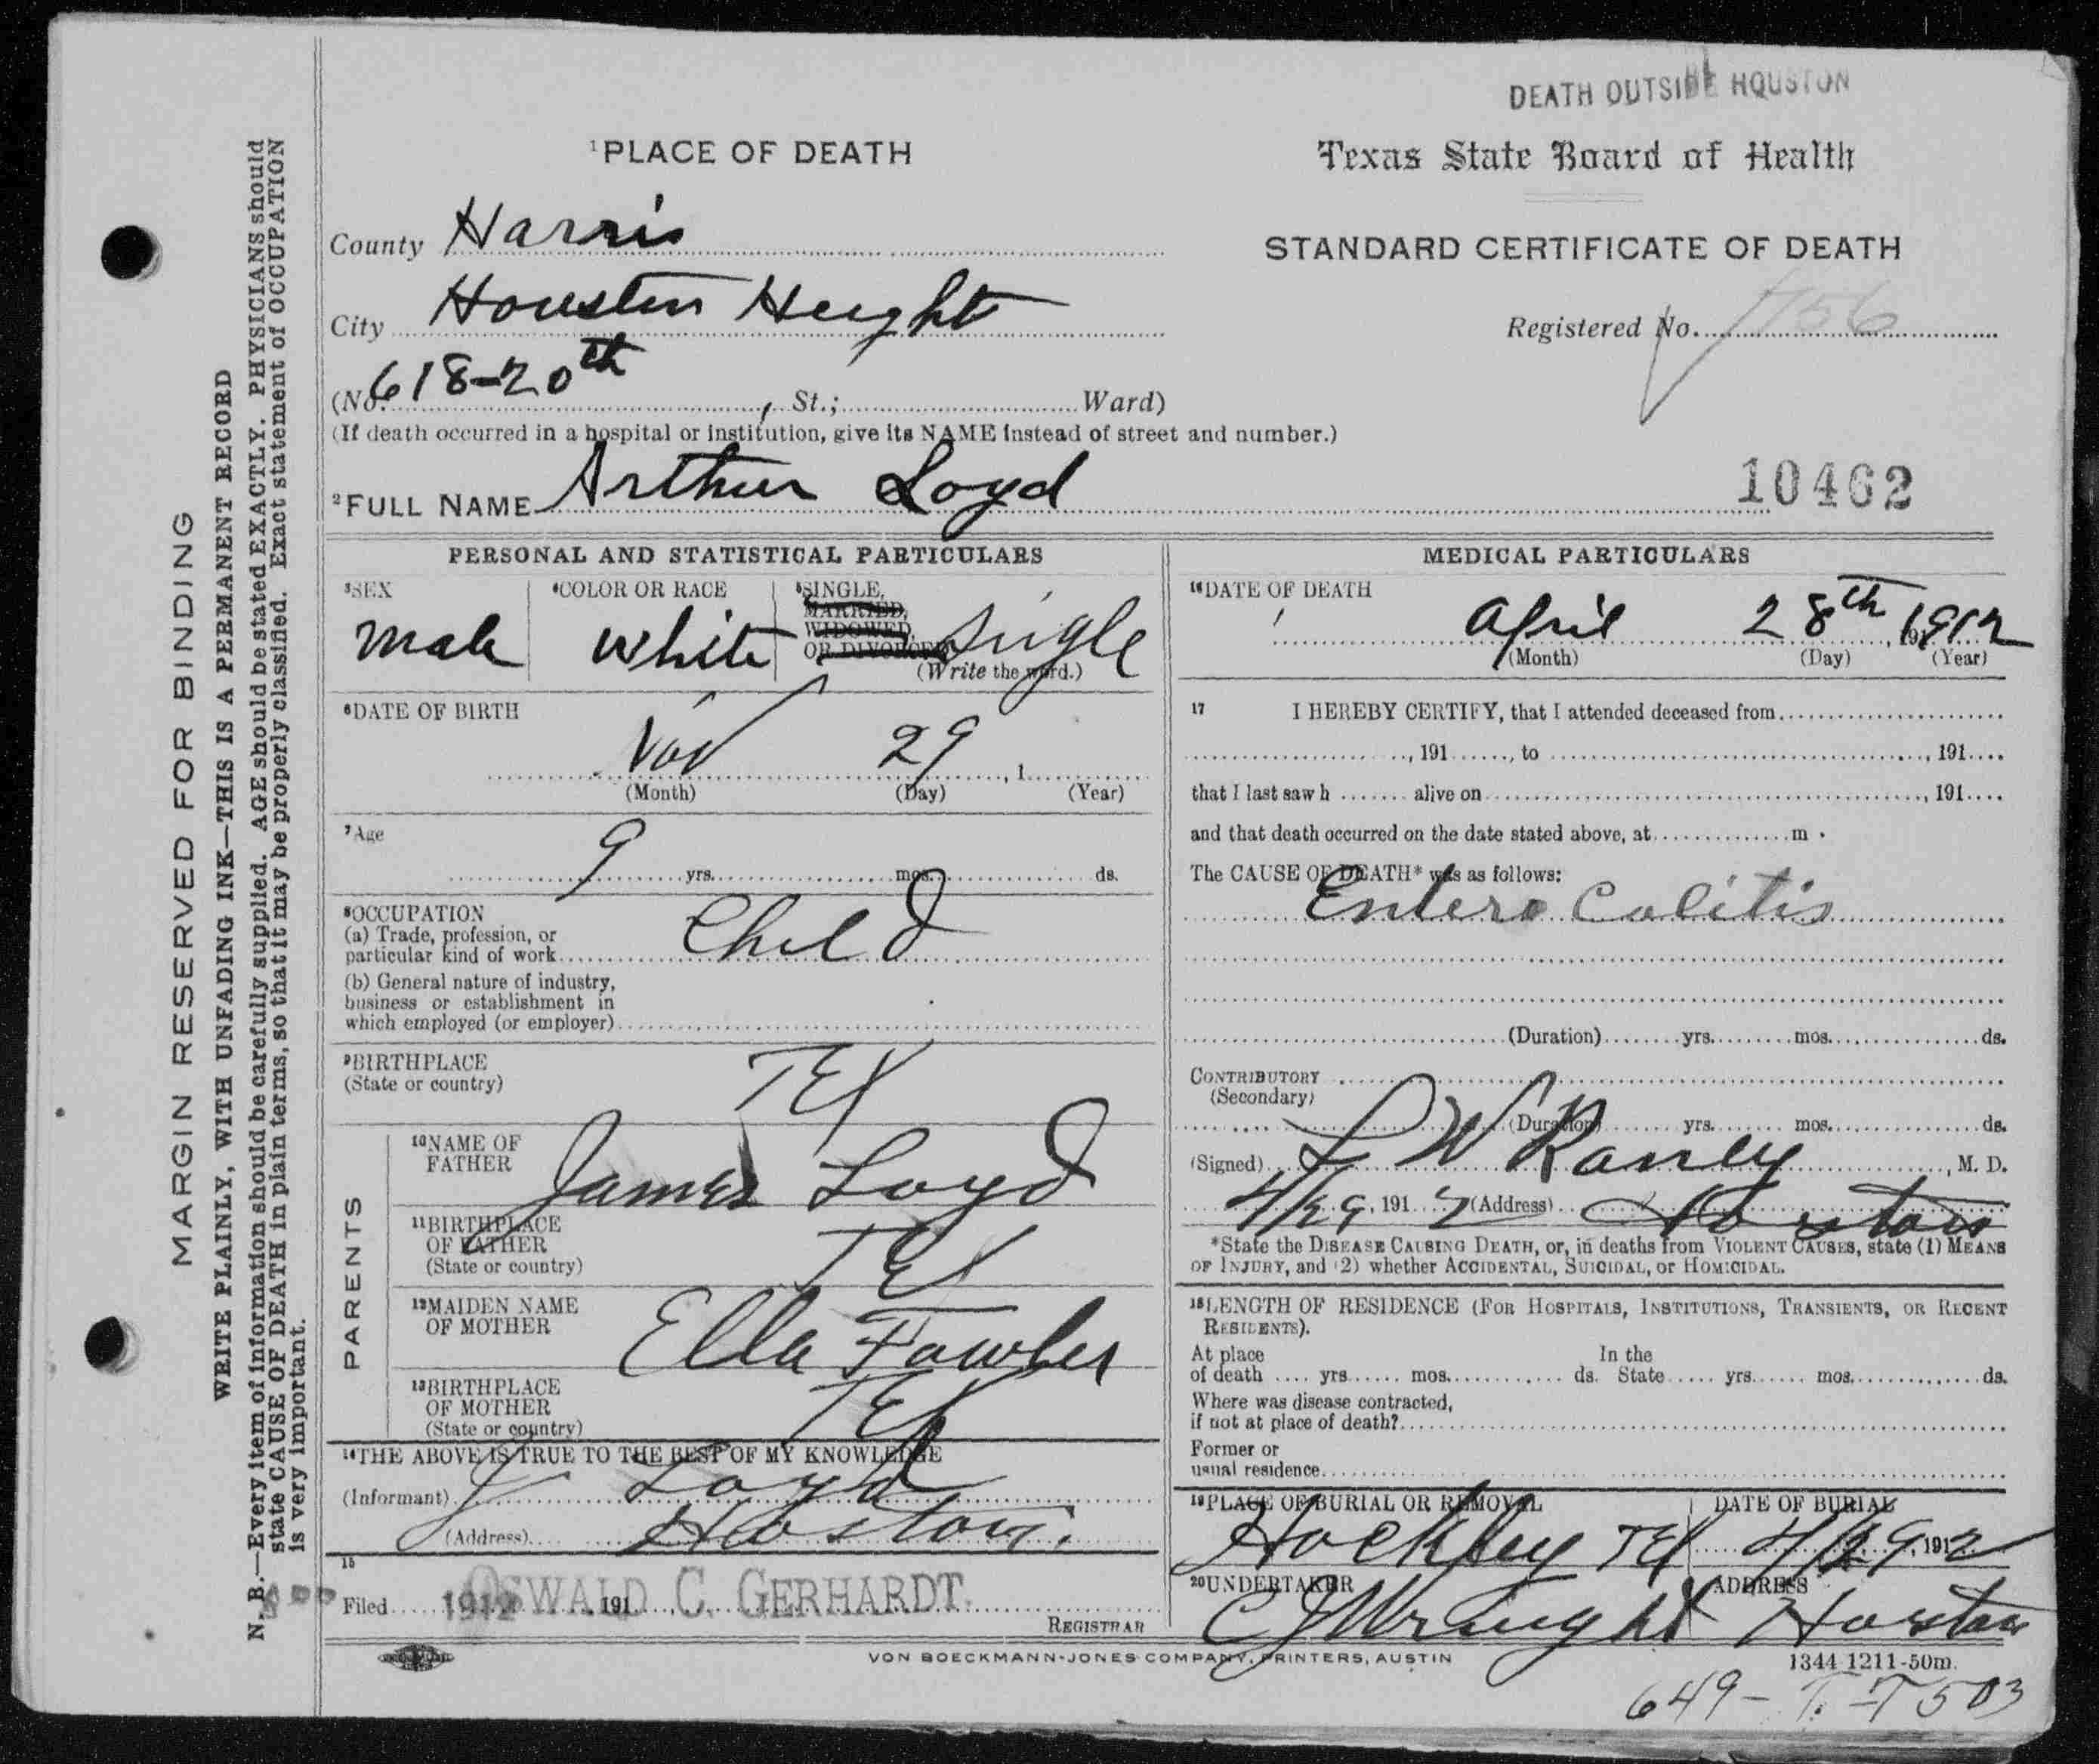 DEATH OUTSIDE HOUSTON
¹PLACE OF DEATH
Texas State Board of Health
STANDARD CERTIFICATE OF DEATH
County Harris
City Houston Height
Registered No. 1156
(No. 618-20th, St.; Ward)
(If death occurred in a hospital or institution, give its NAME instead of street and number.)
²FULL NAME Arthur Loyd
10462
PERSONAL AND STATISTICAL PARTICULARS
³SEX
male
⁴COLOR OR RACE
white
⁵SINGLE,
MARRIED,
WIDOWED,
OR DIVORCED
single
(Write the word.)
⁶DATE OF BIRTH
Nov 29, 1
(Month) (Day) (Year)
⁷Age
9 yrs. mos. ds.
⁸OCCUPATION
(a) Trade, profession, or
particular kind of work Child
(b) General nature of industry,
business or establishment in
which employed (or employer)
⁹BIRTHPLACE
(State or country)
TEX
PARENTS
¹⁰NAME OF
FATHER
James Loyd
¹¹BIRTHPLACE
OF FATHER
(State or country)
TEX
¹²MAIDEN NAME
OF MOTHER
Ella Fowler
¹³BIRTHPLACE
OF MOTHER
(State or country)
TEX
¹⁴THE ABOVE IS TRUE TO THE BEST OF MY KNOWLEDGE
(Informant) J Loyd
(Address) Houston.
15
Filed 1912 191 OSWALD C. GERHARDT.
REGISTRAR
MEDICAL PARTICULARS
¹⁶DATE OF DEATH
April 28th, 1912
(Month) (Day) (Year)
17 I HEREBY CERTIFY, that I attended deceased from
, 191 , to , 191
that I last saw h alive on , 191
and that death occurred on the date stated above, at m.
The CAUSE OF DEATH* was as follows:
Entero Colitis
(Duration) yrs. mos. ds.
CONTRIBUTORY
(Secondary)
(Duration) yrs. mos. ds.
(Signed) L W Raney, M. D.
4/29, 1912 (Address) Houston
*State the DISEASE CAUSING DEATH, or, in deaths from VIOLENT CAUSES, state (1) MEANS
OF INJURY, and (2) whether ACCIDENTAL, SUICIDAL, or HOMICIDAL.
¹⁸LENGTH OF RESIDENCE (FOR HOSPITALS, INSTITUTIONS, TRANSIENTS, OR RECENT
RESIDENTS).
At place In the
of death yrs. mos. ds. State yrs. mos. ds.
Where was disease contracted,
if not at place of death?
Former or
usual residence
¹⁹PLACE OF BURIAL OR REMOVAL
Hockley TEX
DATE OF BURIAL
4/29, 1912
²⁰UNDERTAKER
C J Wright
ADDRESS
Houston
VON BOECKMANN-JONES COMPANY, PRINTERS, AUSTIN
1344 1211-50m.
649-T.-T 503
MARGIN RESERVED FOR BINDING
WRITE PLAINLY, WITH UNFADING INK—THIS IS A PERMANENT RECORD
N. B.—Every item of information should be carefully supplied. AGE should be stated EXACTLY. PHYSICIANS should
state CAUSE OF DEATH in plain terms, so that it may be properly classified. Exact statement of OCCUPATION
is very important.